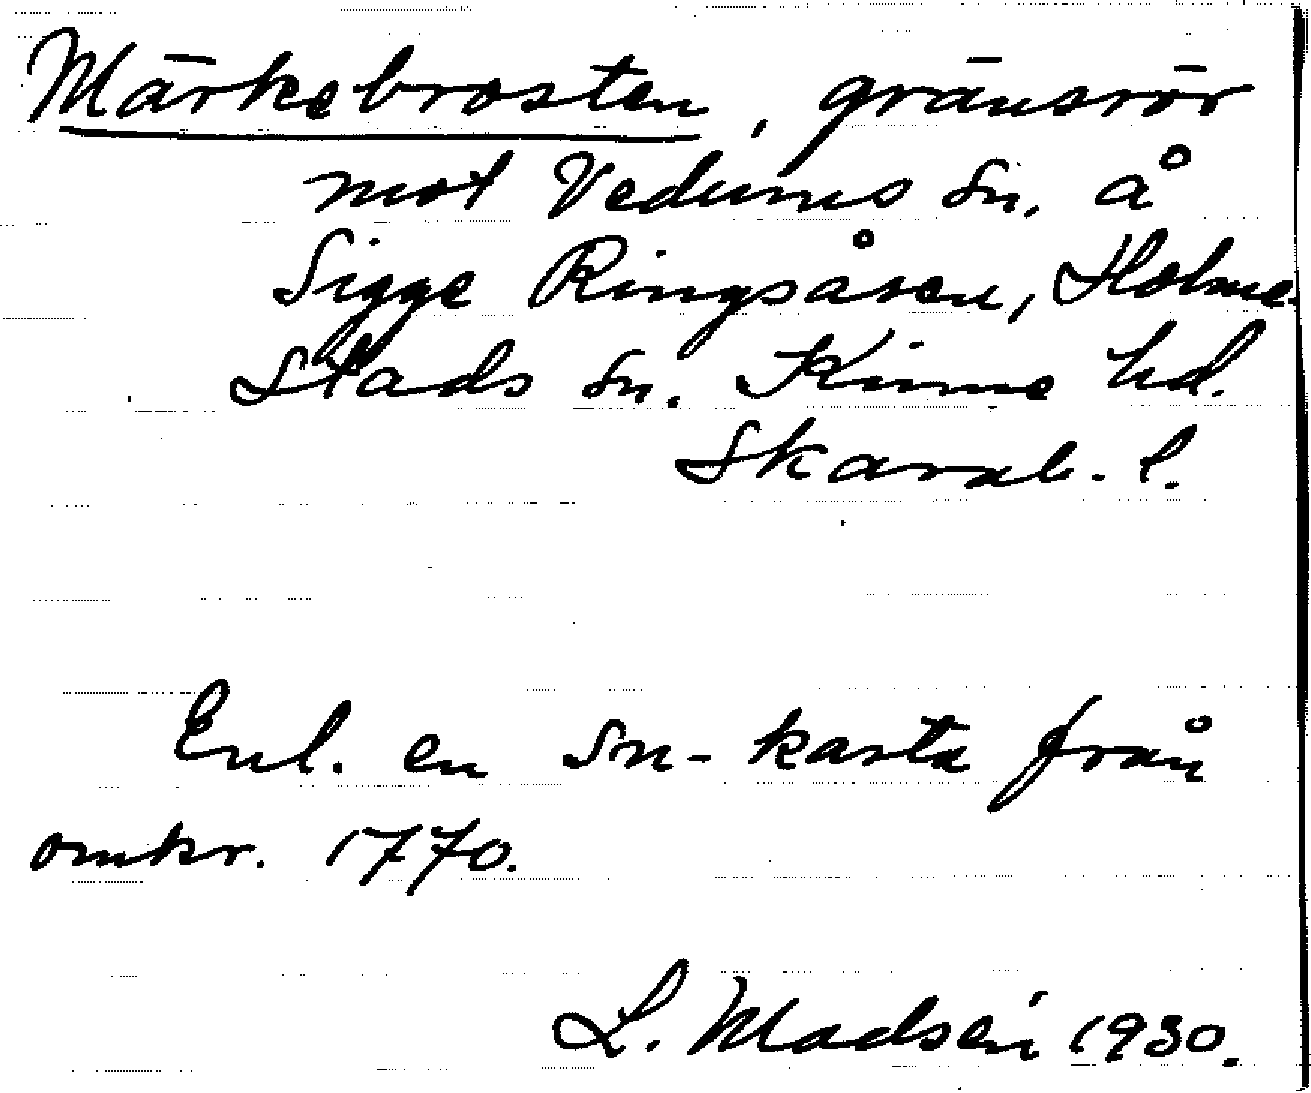 Märkebrosten, gränsrör
mot Vedums sn. å
Sigge Ringsåsen, Holme-
stads sn. Kinne hd.
Skarab. l.
Enl. en sn-karta från
omkr. 1770.
L. Madsén 1930.